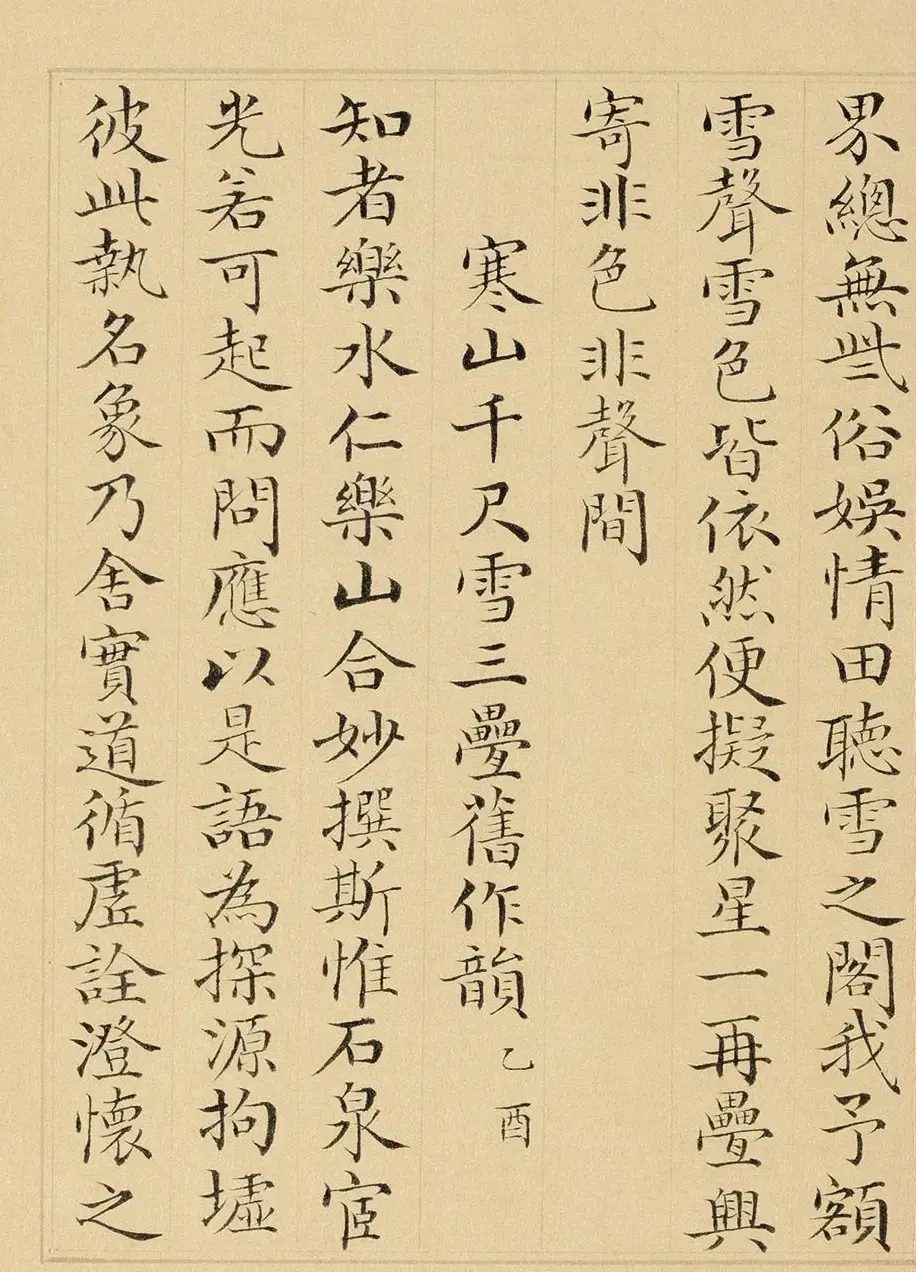 界總無㱔俗娛情田聽雪之閣我予額
雪聲雪色皆依然便擬聚星一再疊興
寄非色非聲間
寒山千尺雪三疊舊作韻 乙酉
知者樂水仁樂山合妙撰斯惟石泉宦
光若可起而問應以是語為探源拘墟
彼此執名象乃舍實道循虛詮澄懷之